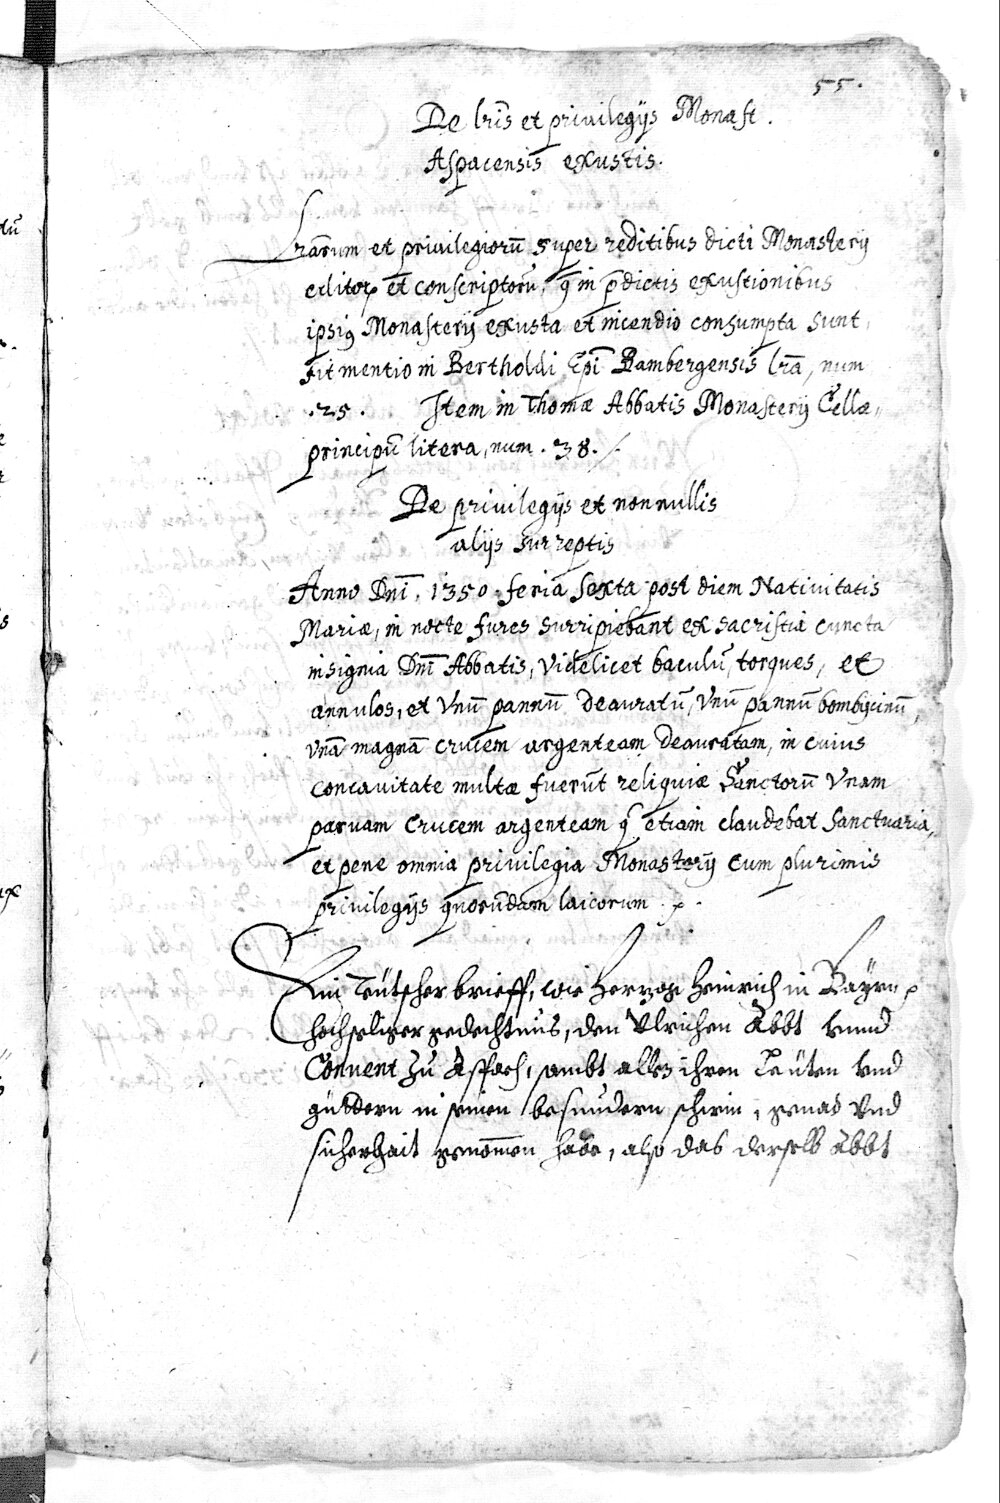 55.
De lris et privilegijs Monast.
Aspacensis exustis.
Lrarum et privilegiorū super reditibus dicti Monasterij
editor et conscriptorū, q̄ in p̄dictis exustionibus
ipsiꝰ Monasterij exusta et incendio consumpta sunt,
fit mentio in Bertholdi Epī Bambergensis lrā, num
.25. Item in Thomæ Abbatis Monasterij Cellæ
principū litera, num. 38. /.
De privilegijs et nonnullis
alijs surreptis
Anno Dnī. 1350. feria sexta post diem Nativitatis
Mariæ, in nocte fures surripiebant ex sacristia cuncta
insignia Dnī Abbatis, videlicet baculū, torques, et
annulos, et vnū pannū deauratū, vnū pannū bombijcinū,
vnā magnā crucem argenteam deauratam, in cuius
concavitate multæ fuerūt reliquiæ Sanctorū vnam
parvam crucem argenteam q̄ etiam claudebat sanctuaria,
et pene omnia privilegia Monasterij cum plurimis
privilegijs quorūdam laicorum
Ein Teütscher brieff, wie Herzog Heinrich in Bayrn
hochseliger gedechtnus, den Vlrichen Abbt vnnd
Convent zu Aspach, sambt allen ihren Leüten vnd
güettern in seinen besundern schirm, genad vnd
sicherhait genom̄en habe, also das derselb Abbt